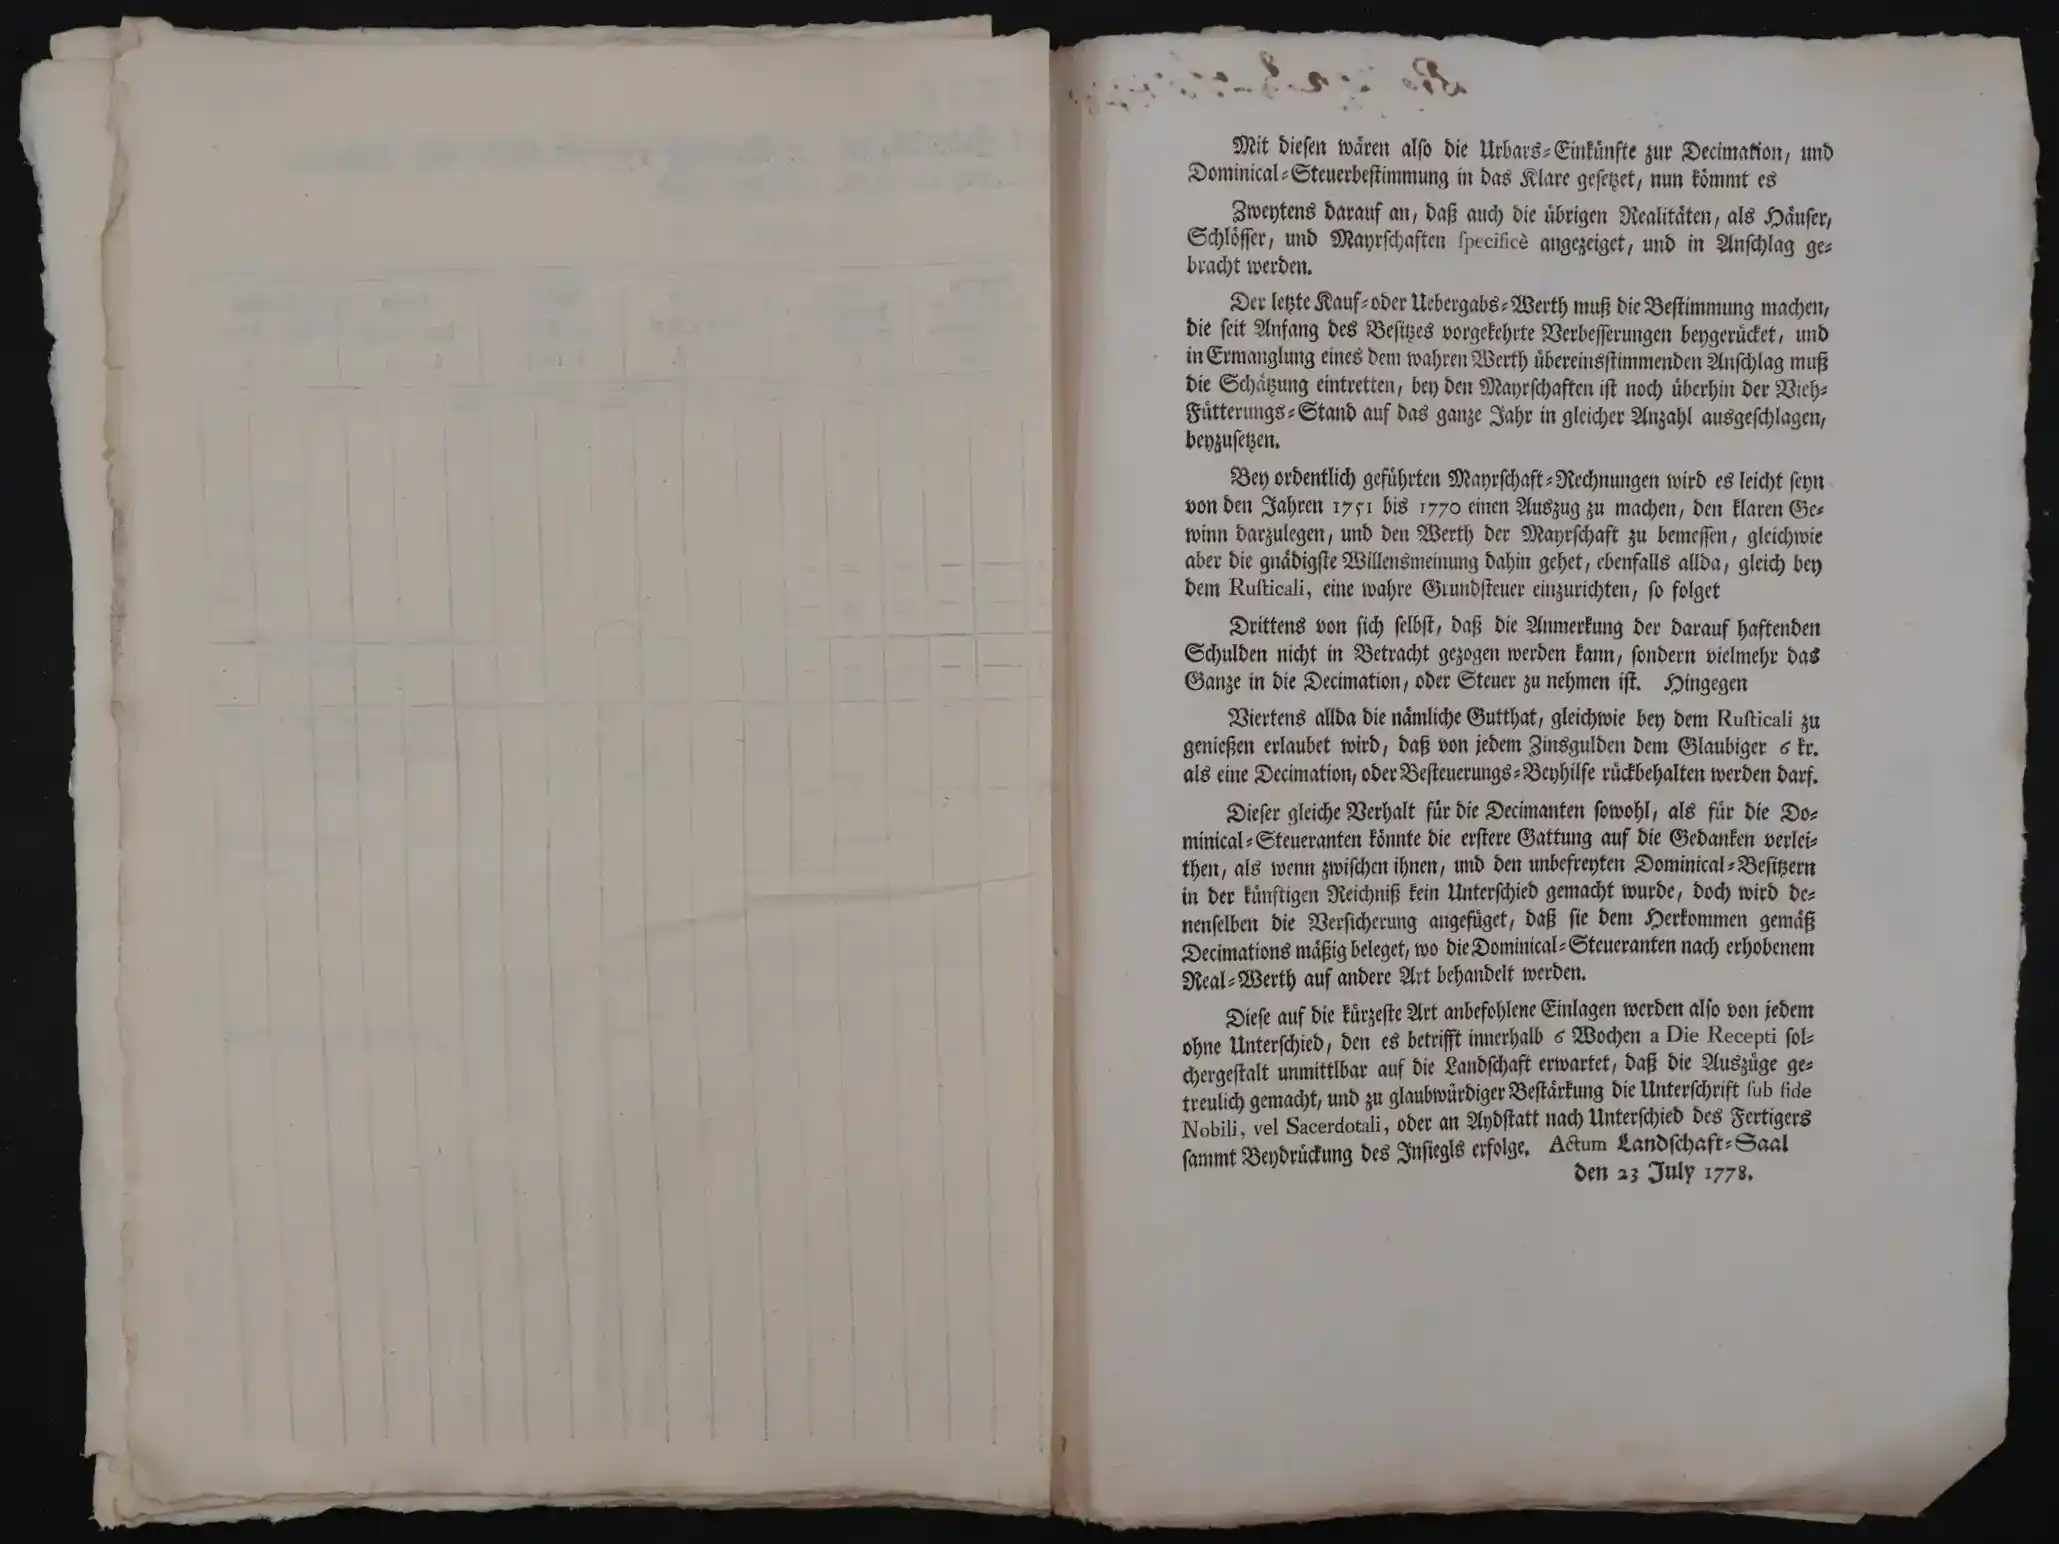 Mit dieſen wären alſo die Urbars⸗Einkünfte zur Decimation, und
Dominical⸗Steuerbeſtimmung in das Klare geſetzet, nun kömmt es
Zweytens darauf an, daß auch die übrigen Realitäten, als Häuſer,
Schlöſſer, und Mayrſchaften ſpecificè angezeiget, und in Anſchlag ge⸗
bracht werden.
Der letzte Kauf⸗oder Uebergabs⸗Werth muß die Beſtimmung machen,
die ſeit Anfang des Beſitzes vorgekehrte Verbeſſerungen beygerücket, und
in Ermanglung eines dem wahren Werth übereinsſtimmenden Anſchlag muß
die Schätzung eintretten, bey den Mayrſchaften iſt noch überhin der Vieh⸗
Fütterungs⸗Stand auf das ganze Jahr in gleicher Anzahl ausgeſchlagen,
beyzuſetzen.
Bey ordentlich geführten Mayrſchaft⸗Rechnungen wird es leicht ſeyn
von den Jahren 1751 bis 1770 einen Auszug zu machen, den klaren Ge⸗
winn darzulegen, und den Werth der Mayrſchaft zu bemeſſen, gleichwie
aber die gnädigſte Willensmeinung dahin gehet, ebenfalls allda, gleich bey
dem Ruſticali, eine wahre Grundſteuer einzurichten, ſo folget
Drittens von ſich ſelbſt, daß die Anmerkung der darauf haftenden
Schulden nicht in Betracht gezogen werden kann, ſondern vielmehr das
Ganze in die Decimation, oder Steuer zu nehmen iſt. Hingegen
Viertens allda die nämliche Gutthat, gleichwie bey dem Ruſticali zu
genießen erlaubet wird, daß von jedem Zinsgulden dem Glaubiger 6 kr.
als eine Decimation, oder Beſteuerungs⸗Beyhilfe rückbehalten werden darf.
Dieſer gleiche Verhalt für die Decimanten ſowohl, als für die Do⸗
minical⸗Steueranten könnte die erſtere Gattung auf die Gedanken verlei⸗
then, als wenn zwiſchen ihnen, und den unbefreyten Dominical⸗Beſitzern
in der künftigen Reichniß kein Unterſchied gemacht wurde, doch wird de⸗
nenſelben die Verſicherung angefüget, daß ſie dem Herkommen gemäß
Decimations mäßig beleget, wo die Dominical⸗Steueranten nach erhobenem
Real⸗Werth auf andere Art behandelt werden.
Dieſe auf die kürzeſte Art anbefohlene Einlagen werden alſo von jedem
ohne Unterſchied, den es betrifft innerhalb 6 Wochen a Die Recepti ſol⸗
chergeſtalt unmittlbar auf die Landſchaft erwartet, daß die Auszüge ge⸗
treulich gemacht, und zu glaubwürdiger Beſtärkung die Unterſchrift ſub fide
Nobili, vel Sacerdotali, oder an Aydſtatt nach Unterſchied des Fertigers
ſammt Beydrückung des Inſiegls erfolge. Actum Landſchaft⸗Saal
den 23 July 1778.